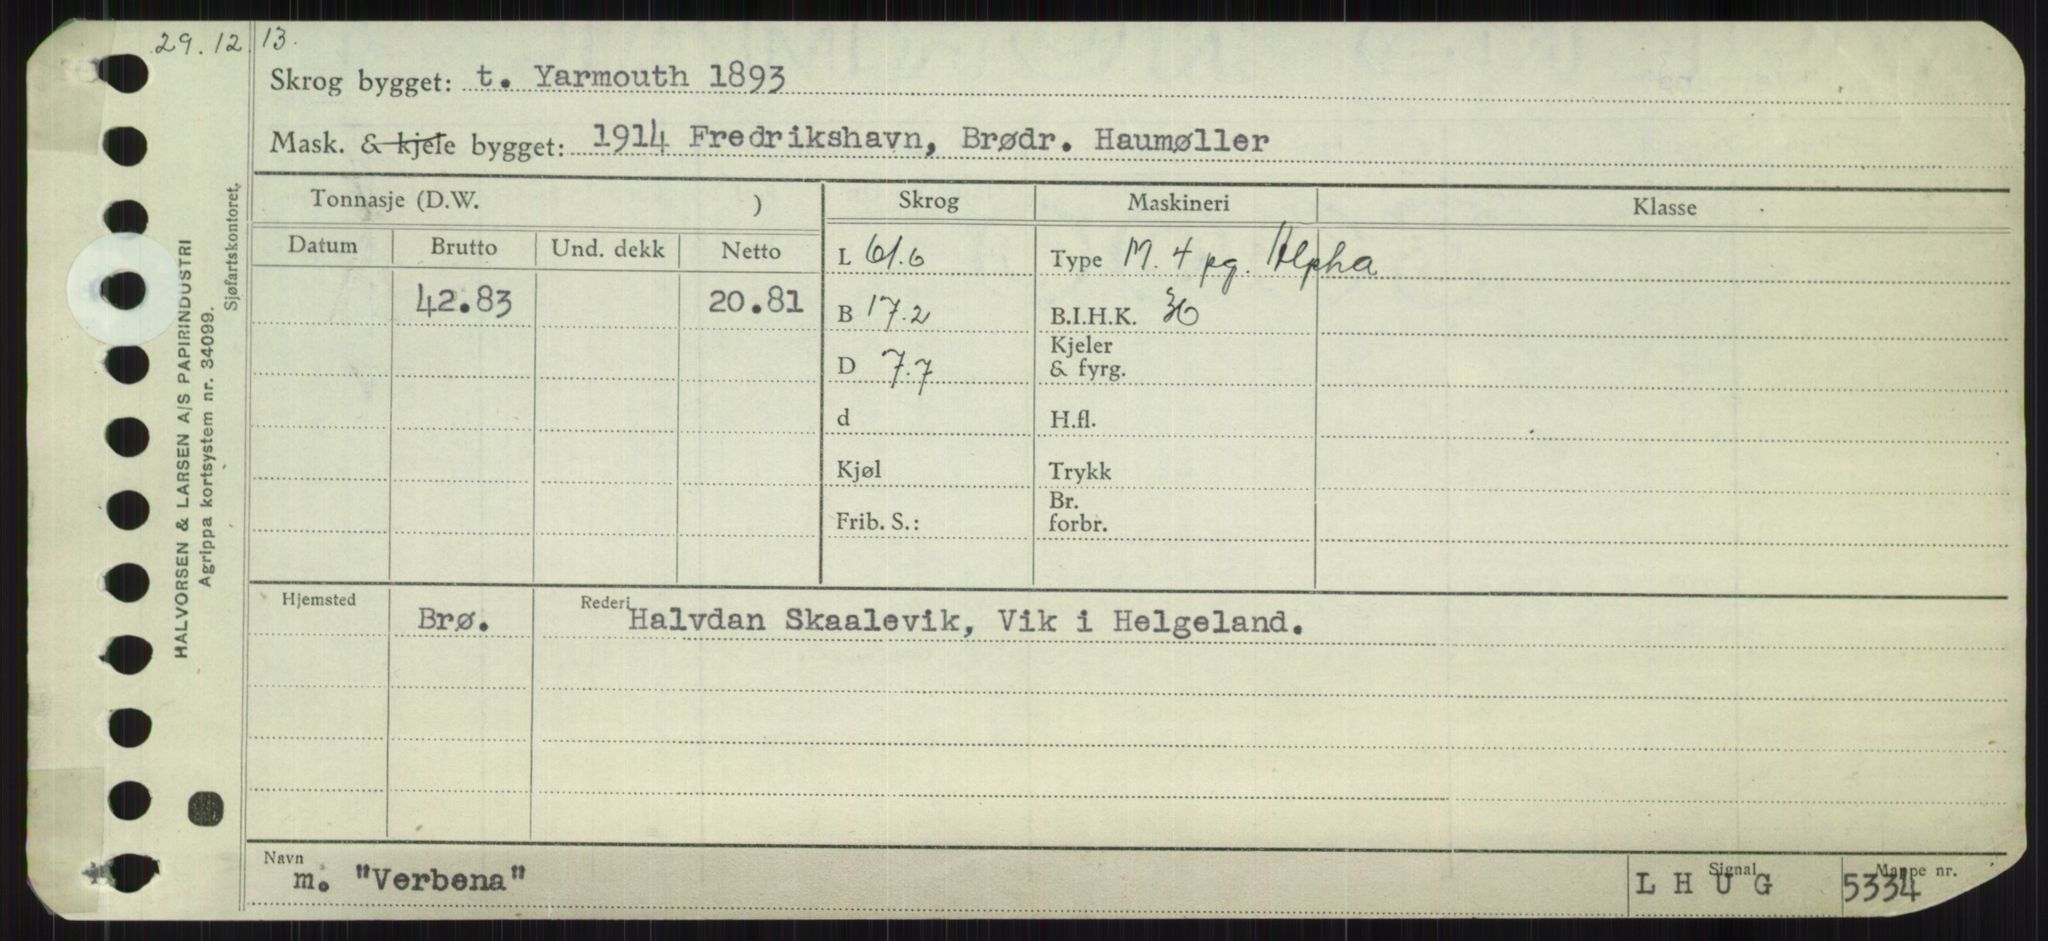 29.12.13.
Skrog bygget: t. Yarmouth 1893
Mask. & kjele bygget: 1914 Fredrikshavn, Brødr. Haumøller
Tonnasje (D.W. ) Skrog Maskineri Klasse
Datum Brutto Und. dekk Netto
L 61.6 Type M. 4 pg. Alpha
42.83 20.81 B 17.2 B.I.H.K. 36
D 7.7 Kjeler
& fyrg.
d H.fl.
Kjøl Trykk
Frib. S.: Br.
forbr.
Hjemsted Brø. Rederi Halvdan Skaalevik, Vik i Helgeland.
Navn m. "Verbena" Signal L H U G Mappe nr. 5334
HALVORSEN & LARSEN A/S PAPIRINDUSTRI
Agrippa kortsystem nr. 34099.
Sjøfartskontoret.